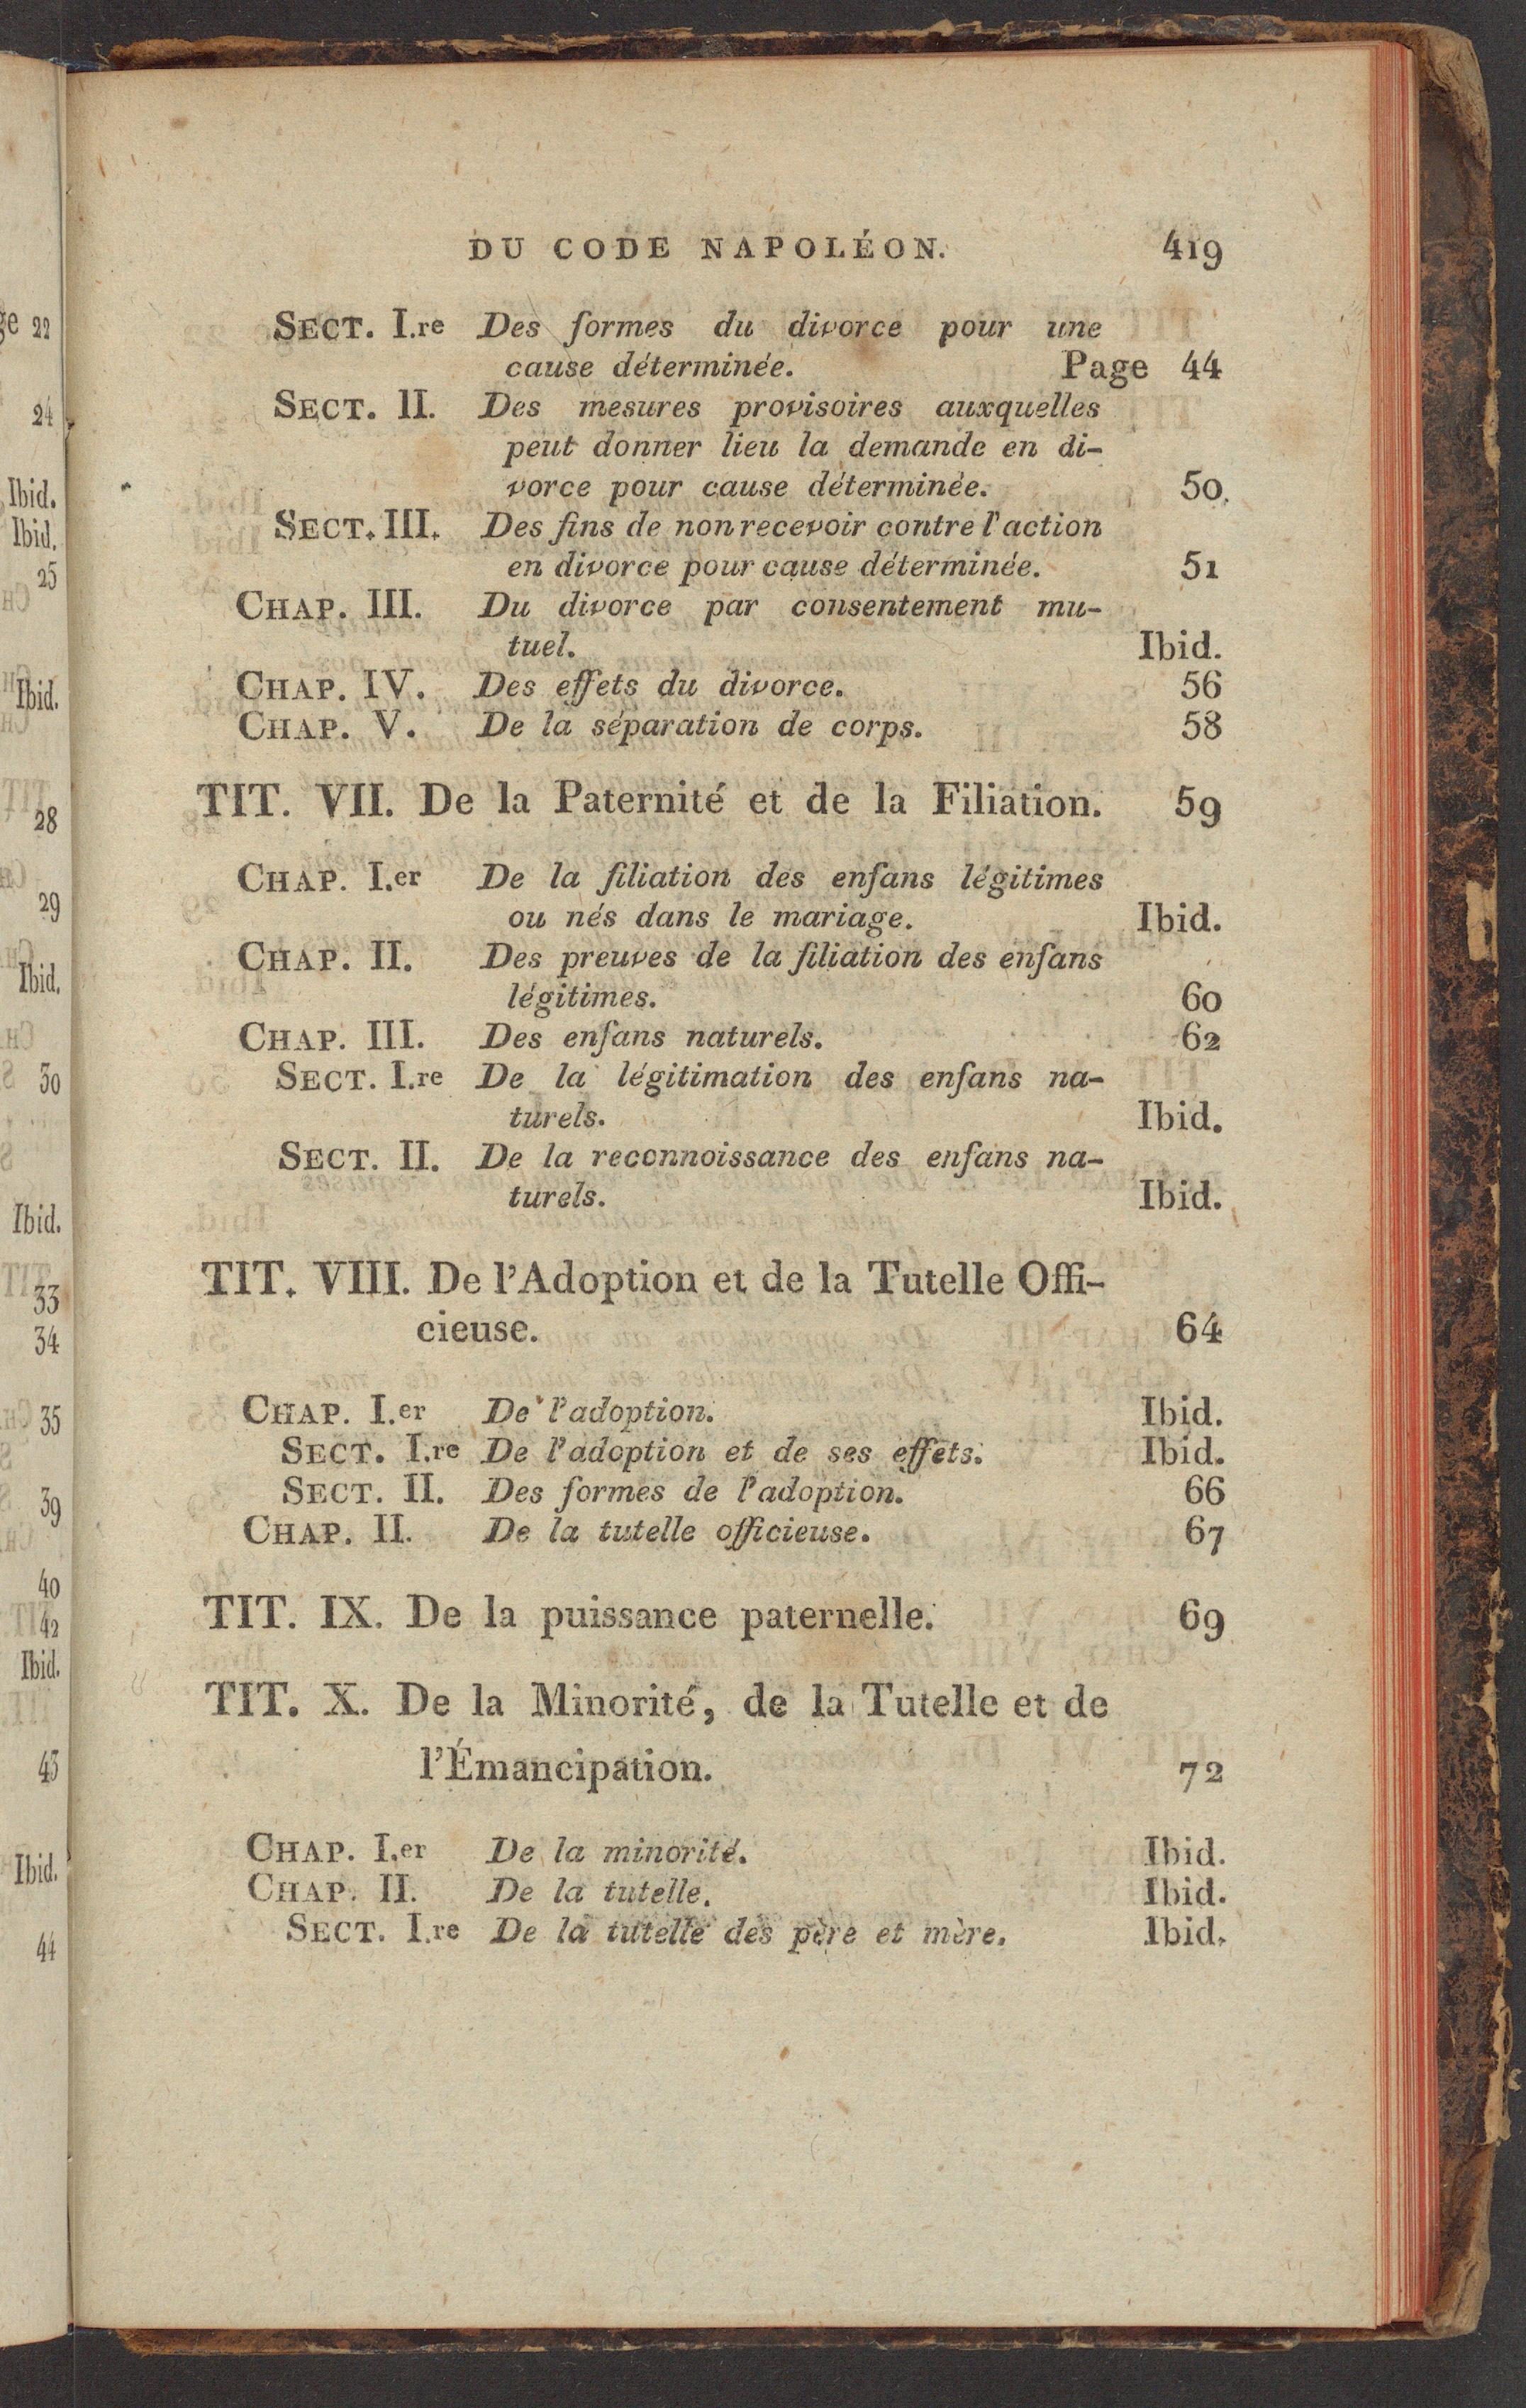 DU CODE NAPOLÉON. 419
SECT. I.re Des formes du divorce pour une
cause déterminée. Page 44
SECT. II. Des mesures provisoires auxquelles
peut donner lieu la demande en di-
vorce pour cause déterminée. 50.
SECT. III. Des fins de non recevoir contre l'action
en divorce pour cause déterminée. 51
CHAP. III. Du divorce par consentement mu-
tuel. Ibid.
CHAP. IV. Des effets du divorce. 56
CHAP. V. De la séparation de corps. 58
TIT. VII. De la Paternité et de la Filiation. 59
CHAP. I.er De la filiation des enfans légitimes
ou nés dans le mariage. Ibid.
CHAP. II. Des preuves de la filiation des enfans
légitimes. 60
CHAP. III. Des enfans naturels. 62
SECT. I.re De la légitimation des enfans na-
turels. Ibid.
SECT. II. De la reconnoissance des enfans na-
turels. Ibid.
TIT. VIII. De l'Adoption et de la Tutelle Offi-
cieuse. 64
CHAP. I.er De l'adoption. Ibid.
SECT. I.re De l'adoption et de ses effets. Ibid.
SECT. II. Des formes de l'adoption. 66
CHAP. II. De la tutelle officieuse. 67
TIT. IX. De la puissance paternelle. 69
TIT. X. De la Minorité, de la Tutelle et de
l'Émancipation. 72
CHAP. I.er De la minorité. Ibid.
CHAP. II. De la tutelle. Ibid.
SECT. I.re De la tutelle des père et mère. Ibid.
22
24
Ibid.
Ibid.
25
Ibid.
28
29
Ibid.
30
Ibid.
33
34
35
39
40
42
Ibid.
43
Ibid.
44